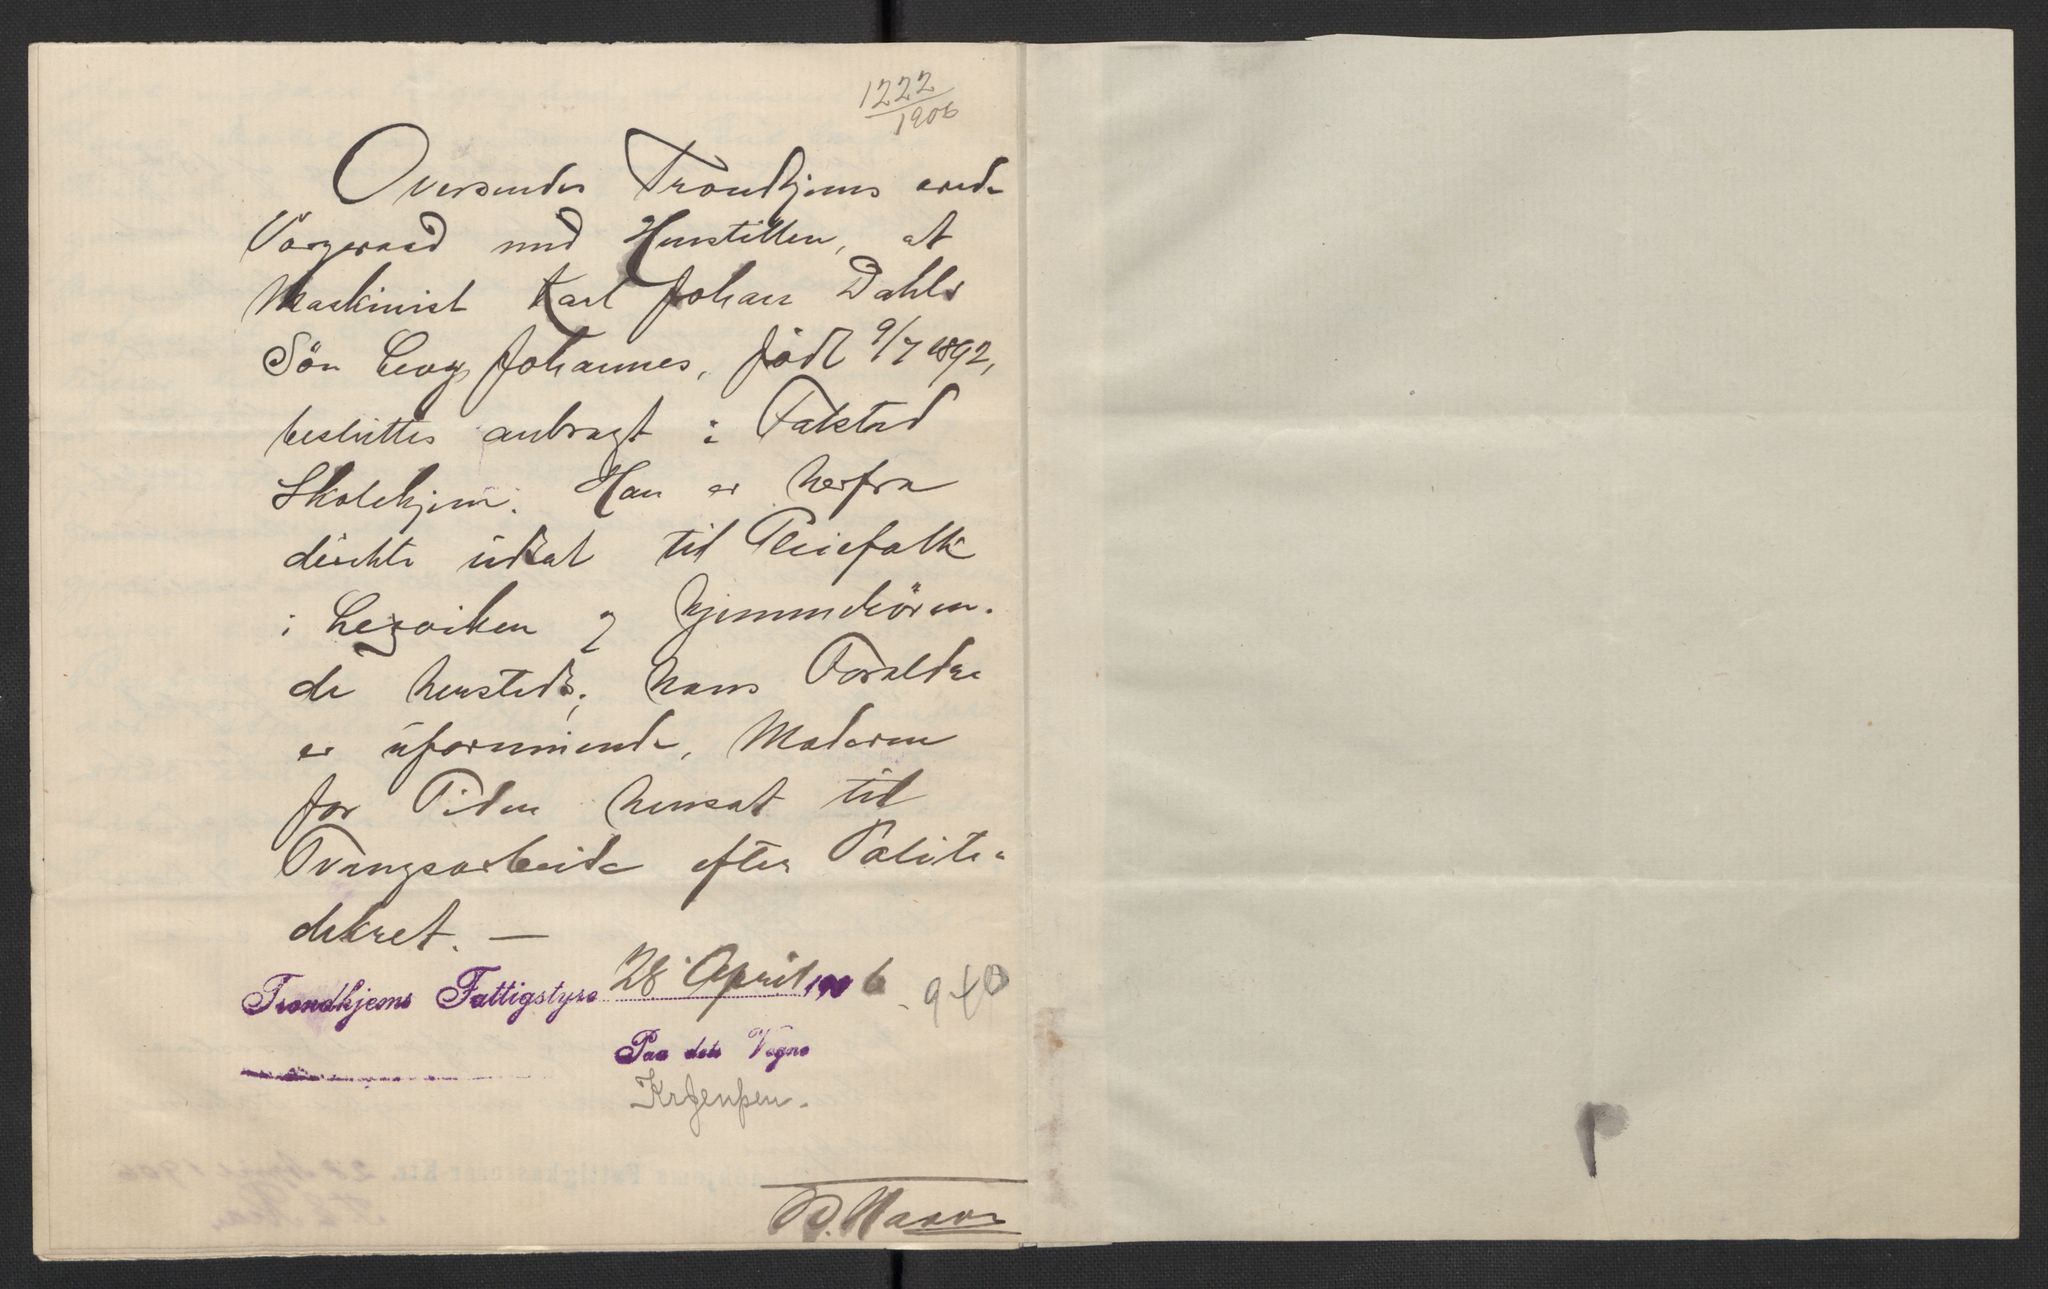 1222
1906
Oversendes Trondhjems ærede
Vergeraad med Henstillen, at
Maskinist Karl Johan Dahls
Sön Georg Johannes, född 9/7 1892,
besluttes anbragt i Falstad
Skolehjem. Han er herfra
direkte udsat til Pleiefolk
i Lexviken og hjemmehören-
de hersteds; hans Forældre
er uformuende, Moderen
for Tiden hensat til
Tvangsarbeide efter Politi-
dekret. —
Trondhjems Fattigstyre 28 April 1906 940
Paa dets Vegne
Kr Jenssen.